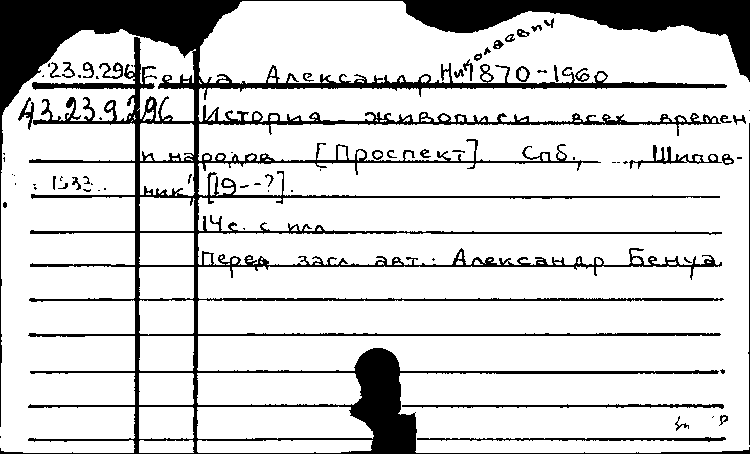 23.9.296 Бенуа, Александр Николаевич 1870-1960
А3.23.9.296 История живописи всех времен
и народов. [Проспект]. Спб., „Шипов-
1933 ник", [19--?].
14 с. с илл.
Перед загл. авт.: Александр Бенуа